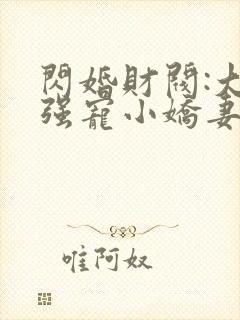 閃婚財閥:大
强寵小嬌妻
唯阿奴